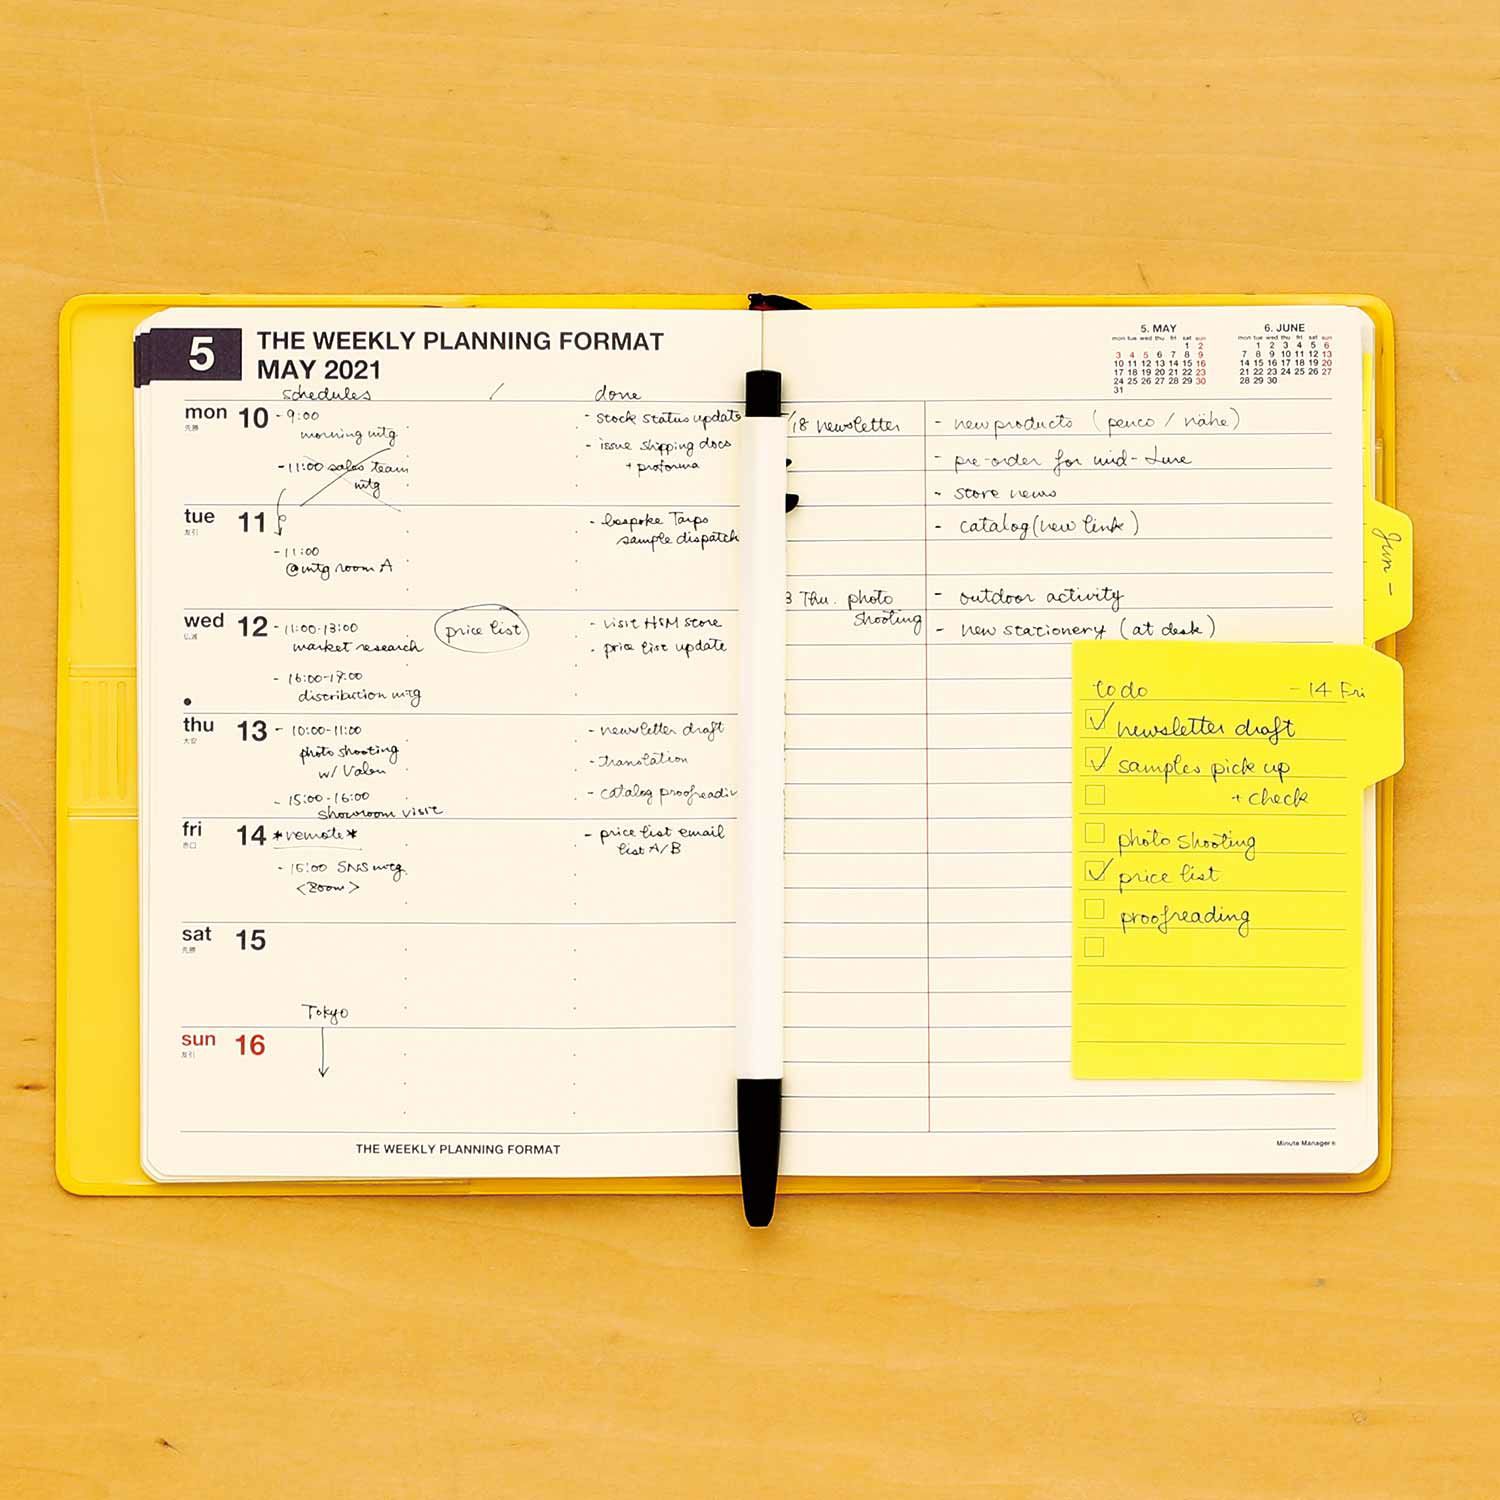 5
THE WEEKLY PLANNING FORMAT
MAY 2021
schedules / done
mon 10
先勝
- 9:00
morning mtg
- 11:00 sales team
mtg
- stock status update
- issue shipping docs
+ proforma
tue 11
友引
- 11:00
@mtg room A
- bespoke Tarps
sample dispatch
wed 12
仏滅
- 11:00-13:00
market research
- 16:00-17:00
distribution mtg
price list
- visit HSM store
- price list update
thu 13
大安
- 10:00-11:00
photo shooting
w/
- 15:00-16:00
showroom visit
- newsletter draft
- translation
- catalog proofreadin
fri 14
赤口
*remote*
- 15:00 SNS mtg
<Zoom>
- price list email
list A/B
sat 15
先勝
Tokyo
sun 16
友引
THE WEEKLY PLANNING FORMAT
5. MAY
mon tue wed thu fri sat sun
1 2
3 4 5 6 7 8 9
10 11 12 13 14 15 16
17 18 19 20 21 22 23
24 25 26 27 28 29 30
31
6. JUNE
mon tue wed thu fri sat sun
1 2 3 4 5 6
7 8 9 10 11 12 13
14 15 16 17 18 19 20
21 22 23 24 25 26 27
28 29 30
/18 newsletter
- new products (penco / nähe)
- pre-order for mid-June
- store news
- catalog (new link)
3 Thu. photo
shooting
- outdoor activity
- new stationery (at desk)
Jun -
to do - 14 Fri
newsletter draft
samples pick up
+ check
photo shooting
price list
proofreading
Minute Manager®